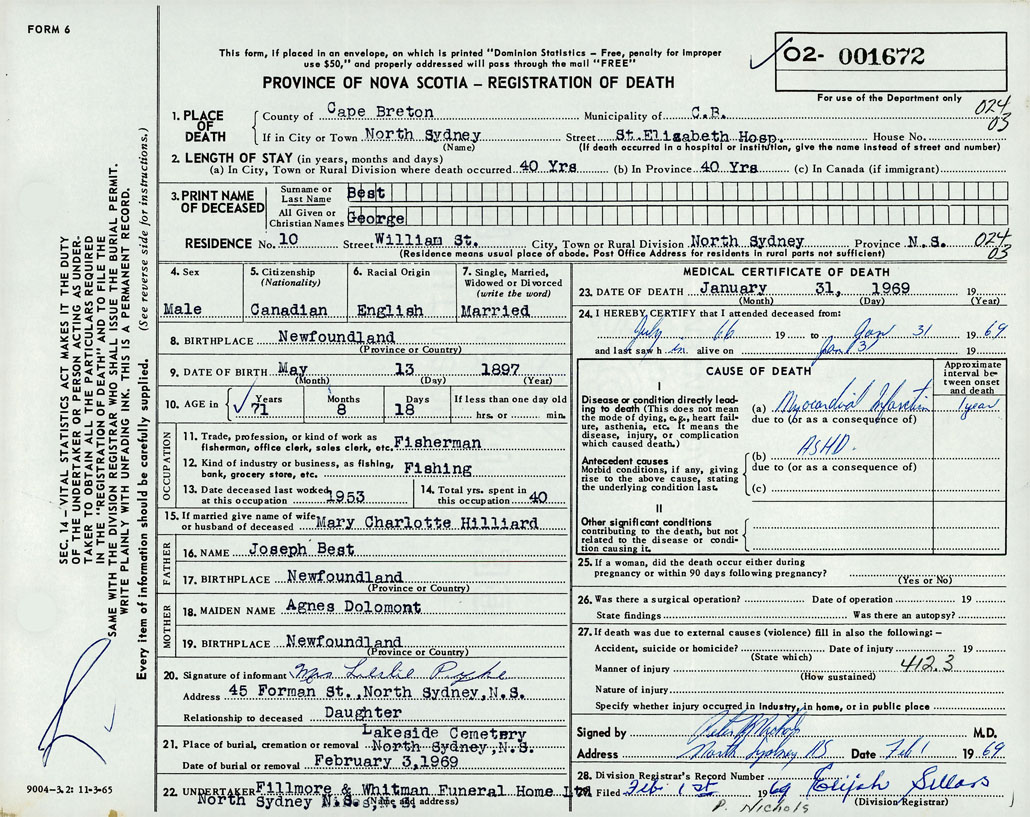 FORM 6
This form, if placed in an envelope, on which is printed "Dominion Statistics – Free, penalty for improper
use $50," and properly addressed will pass through the mail "FREE"
O2- 001672
PROVINCE OF NOVA SCOTIA – REGISTRATION OF DEATH
For use of the Department only
024
03
1. PLACE OF DEATH
County of Cape Breton Municipality of C.B.
If in City or Town North Sydney Street St.Elizabeth Hosp. House No.
(Name) (If death occurred in a hospital or institution, give the name instead of street and number)
2. LENGTH OF STAY (in years, months and days)
(a) In City, Town or Rural Division where death occurred 40 Yrs (b) In Province 40 Yrs (c) In Canada (if immigrant)
3. PRINT NAME OF DECEASED
Surname or Last Name Best
All Given or Christian Names George
RESIDENCE No. 10 Street William St. City, Town or Rural Division North Sydney Province N.S. 024
03
(Residence means usual place of abode. Post Office Address for residents in rural parts not sufficient)
4. Sex
Male
5. Citizenship
(Nationality)
Canadian
6. Racial Origin
English
7. Single, Married,
Widowed or Divorced
(write the word)
Married
8. BIRTHPLACE Newfoundland
(Province or Country)
9. DATE OF BIRTH May 13 1897
(Month) (Day) (Year)
10. AGE in Years Months Days If less than one day old
71 8 18 hrs. or min.
OCCUPATION
11. Trade, profession, or kind of work as
fisherman, office clerk, sales clerk, etc. Fisherman
12. Kind of industry or business, as fishing,
bank, grocery store, etc. Fishing
13. Date deceased last worked
at this occupation 1953
14. Total yrs. spent in
this occupation 40
15. If married give name of wife
or husband of deceased Mary Charlotte Hilliard
FATHER
16. NAME Joseph Best
17. BIRTHPLACE Newfoundland
(Province or Country)
MOTHER
18. MAIDEN NAME Agnes Dolomont
19. BIRTHPLACE Newfoundland
(Province or Country)
20. Signature of informant Mrs Leslie Pyke
Address 45 Forman St.,North Sydney,N.S.
Relationship to deceased Daughter
21. Place of burial, cremation or removal Lakeside Cemetery
North Sydney,N.S.
Date of burial or removal February 3,1969
22. UNDERTAKER Fillmore & Whitman Funeral Home Ltd
North Sydney N.S. (Name and address)
MEDICAL CERTIFICATE OF DEATH
23. DATE OF DEATH January 31, 1969 19
(Month) (Day) (Year)
24. I HEREBY CERTIFY that I attended deceased from:
July 66 19 to Jan 31 19 69
and last saw h im alive on Jan 31 19
CAUSE OF DEATH
Approximate
interval be-
tween onset
and death
I
Disease or condition directly lead-
ing to death (This does not mean
the mode of dying, e.g., heart fail-
ure, asthenia, etc. It means the
disease, injury, or complication
which caused death.)
(a) Myocardial Infarction 1 year
due to (or as a consequence of)
ASHD.
Antecedent causes
Morbid conditions, if any, giving
rise to the above cause, stating
the underlying condition last.
(b)
due to (or as a consequence of)
(c)
II
Other significant conditions
contributing to the death, but not
related to the disease or condi-
tion causing it.
25. If a woman, did the death occur either during
pregnancy or within 90 days following pregnancy?
(Yes or No)
26. Was there a surgical operation? Date of operation 19
State findings Was there an autopsy?
27. If death was due to external causes (violence) fill in also the following: –
Accident, suicide or homicide? Date of injury 19
(State which)
Manner of injury 412.3
(How sustained)
Nature of injury
Specify whether injury occurred in Industry, in home, or in public place
Signed by M.D.
Address North Sydney NS Date Feb 1 19 69
28. Division Registrar's Record Number
29. Filed Feb. 1st 1969 Elijah Sellars
(Division Registrar)
P. NICHOLS
SEC. 14 – VITAL STATISTICS ACT MAKES IT THE DUTY
OF THE UNDERTAKER OR PERSON ACTING AS UNDER-
TAKER TO OBTAIN ALL THE PARTICULARS REQUIRED
IN THE "REGISTRATION OF DEATH" AND TO FILE THE
SAME WITH THE DIVISION REGISTRAR WHO SHALL ISSUE THE BURIAL PERMIT.
WRITE PLAINLY WITH UNFADING INK. THIS IS A PERMANENT RECORD.
Every item of information should be carefully supplied. (See reverse side for instructions.)
9004–3.2: 11-3-65